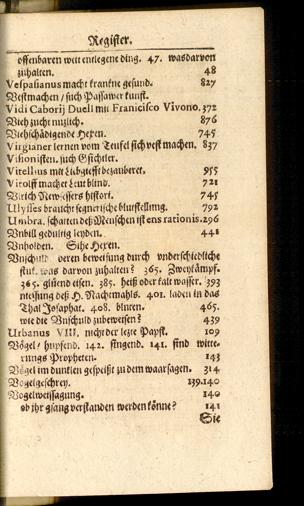 Register.
offenbaren weit entlegene ding. 47. was darvon
zuhalten. 48
Vespasianus macht krancke gesund. 827
Vestmachen / such Passawer kunst.
Vidi Caborij Duell mit Francisco Vivono. 372
Vieh zucht nuzlich. 876
Viehschädigende Hexen. 745
Virgianer lernen vom Teufel sich vest machen. 837
Visionisten. such Gsichtler.
Vitellius mit Liebgiefft bezauberet. 955
Vitolff machet Leut blind. 721
Ulrich histori. 745
Ulysses braucht segnerische blutstellung. 792
Umbra. schatten deß Menschen ist ens rationis. 296
Unbill gedultig leyden. 441
Unholden. Sihe Hexen.
Unschuld deren beweisung durch underschiedliche
stuk. was darvon zuhalten? 365. Zweykämpf.
365. glüend eisen. 385. heiß oder kalt wasser. 393
niessung deß H. Nachtmahls. 401. laden in das
Thal Josaphat. 408. bluten. 465.
wie die Unschuld zubeweisen? 439
Urbanus VIII. nicht der lezte Papst. 109
Vögel / hupfend. 142. singend. 141. sind witte-
rungs Propheten. 143
Vögel im dunklen gespeißt zu dem waarsagen. 314
Vogelgeschrey. 139.140
Vogelweissagung. 140
ob ihr gsang verstanden werden könne? 141
Sie